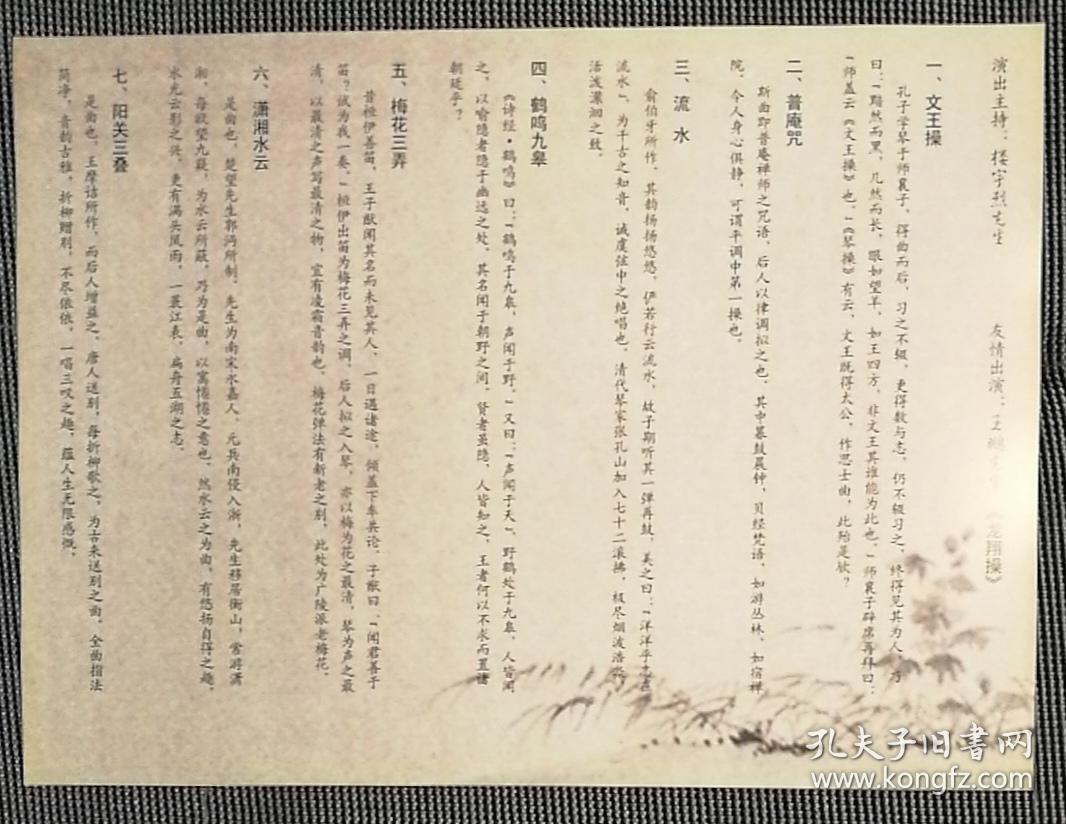 演出主持：楼宇烈先生
友情出演：王
《龙翔操》
一、文王操
孔子学琴于师襄子，得曲而后，习之不辍，更得数与志，仍不辍习之，终得见其为人，乃
曰：“黯然而黑，几然而长，眼如望羊，如王四方，非文王其谁能为此也。”师襄子辟席再拜曰：
“师盖云《文王操》也。”《琴操》有云，文王既得太公，作思士曲，此殆是欤？
二、普庵咒
斯曲即普庵禅师之咒语，后人以律调拟之也。其中暮鼓晨钟，贝经梵语，如游丛林，如宿禅
院，令人身心俱静，可谓平调中第一操也。
三、流 水
俞伯牙所作，其韵扬扬悠悠，俨若行云流水，故子期听其一弹再鼓，美之曰：“洋洋乎志在
流水”，为千古之知音，诚虞弦中之绝唱也。清代琴家张孔山加入七十二滚拂，极尽烟波浩渺、
活泼潆洄之致。
四、鹤鸣九皋
《诗经·鹤鸣》曰：“鹤鸣于九皋，声闻于野，”又曰：“声闻于天”，野鹤处于九皋，人皆闻
之，以喻隐者隐于幽远之处，其名闻于朝野之间，贤者虽隐，人皆知之，王者何以不求而置诸
朝廷乎？
五、梅花三弄
昔桓伊善笛，王子猷闻其名而未见其人，一日遇诸途，倾盖下车共论，子猷曰：“闻君善于
笛？试为我一奏。”桓伊出笛为梅花三弄之调，后人拟之入琴，亦以梅为花之最清，琴为声之最
清，以最清之声写最清之物，宜有凌霜音韵也。梅花弹法有新老之别，此处为广陵派老梅花。
六、潇湘水云
是曲也，楚望先生郭沔所制。先生为南宋永嘉人，元兵南侵入浙，先生移居衡山，常游潇
湘，每欲望九嶷，为水云所蔽，乃为是曲，以寓惓惓之意也。然水云之为曲，有悠扬自得之趣，
水光云影之兴，更有满头风雨，一蓑江表，扁舟五湖之志。
七、阳关三叠
是曲也，王摩诘所作，而后人增益之，唐人送别，每折柳歌之，为古来送别之曲。全曲指法
简净，音韵古雅，折柳赠别，不尽依依，一唱三叹之趣，蕴人生无限感慨。
孔夫子旧书网
www.kongfz.com